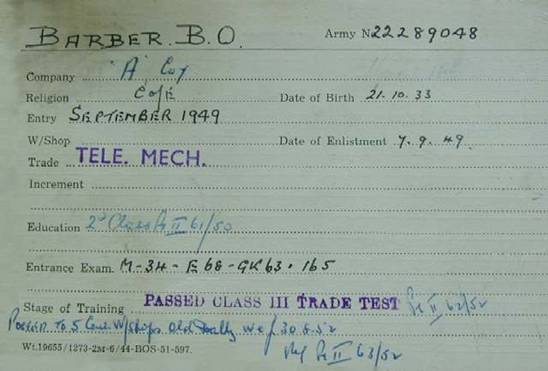 BARBER. B.O. Army No 22289048
Company "A" Coy
Religion C of E Date of Birth 21.10.33
Entry SEPTEMBER 1949
W/Shop Date of Enlistment 7.9.49.
Trade TELE. MECH.
Increment
Education 2d Class Pt II 61/50
Entrance Exam. M-34-E68-GK63.165
Stage of Training PASSED CLASS III TRADE TEST Pt II 62/52
Posted to 5 W/Shops Old wef 30.8.52
Wt.19655/1273-2M-6/44-BOS-51-597. Pt II 63/52